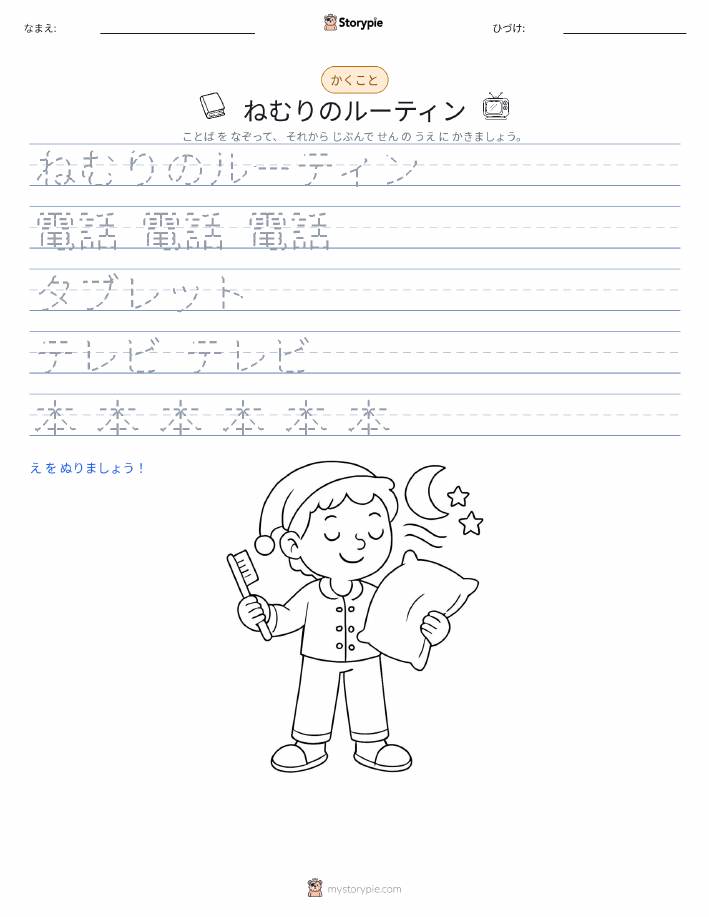 なまえ:
Storypie
ひづけ:
かくこと
ねむりのルーティン
ことば を なぞって、 それから じぶんで せん の うえ に かきましょう。
ねむりのルーティン
電話 電話 電話
タブレット
テレビ テレビ
本 本 本 本 本 本
え を ぬりましょう！
mystorypie.com